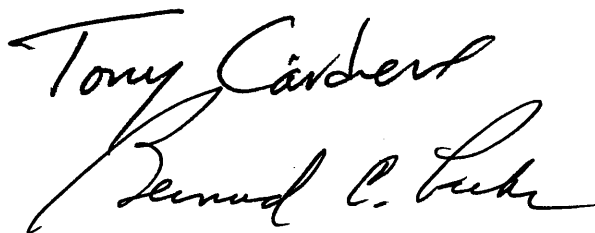 Tony Cárdenas
Bernard C.